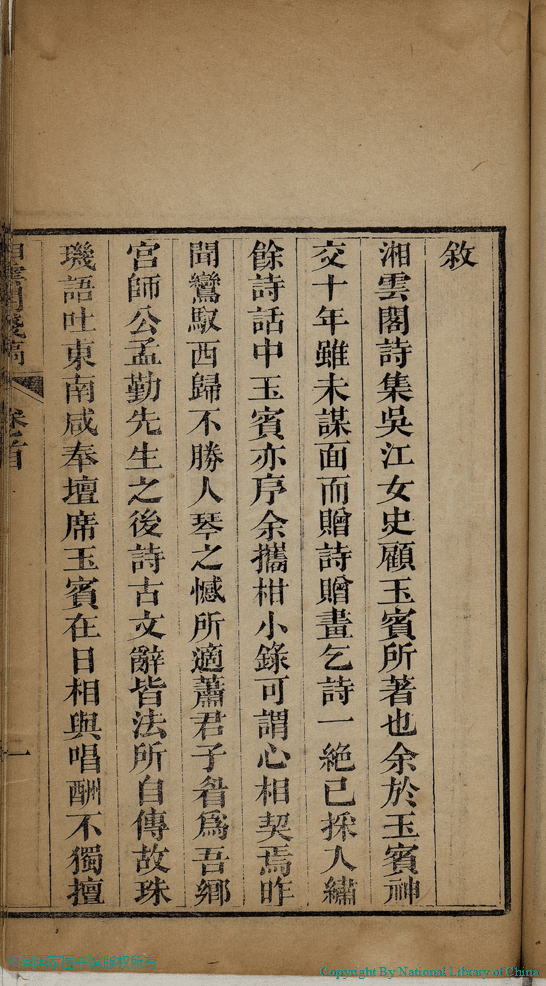 敘
湘雲閣詩集吳江女史顧玉賓所著也余於玉賓神
交十年雖未謀面而贈詩贈畫乞詩一絶已採人繡
餘詩話中玉賓亦序余攜柑小錄可謂心相契焉昨
聞鸞馭西歸不勝人琴之憾所適蕭君子㫺爲吾鄉
宮師公孟勤先生之後詩古文辭皆法所自傳故珠
璣語吐東南咸奉壇席玉賓在日相與唱酬不獨擅
卷首
一
Copyright By National Library of China